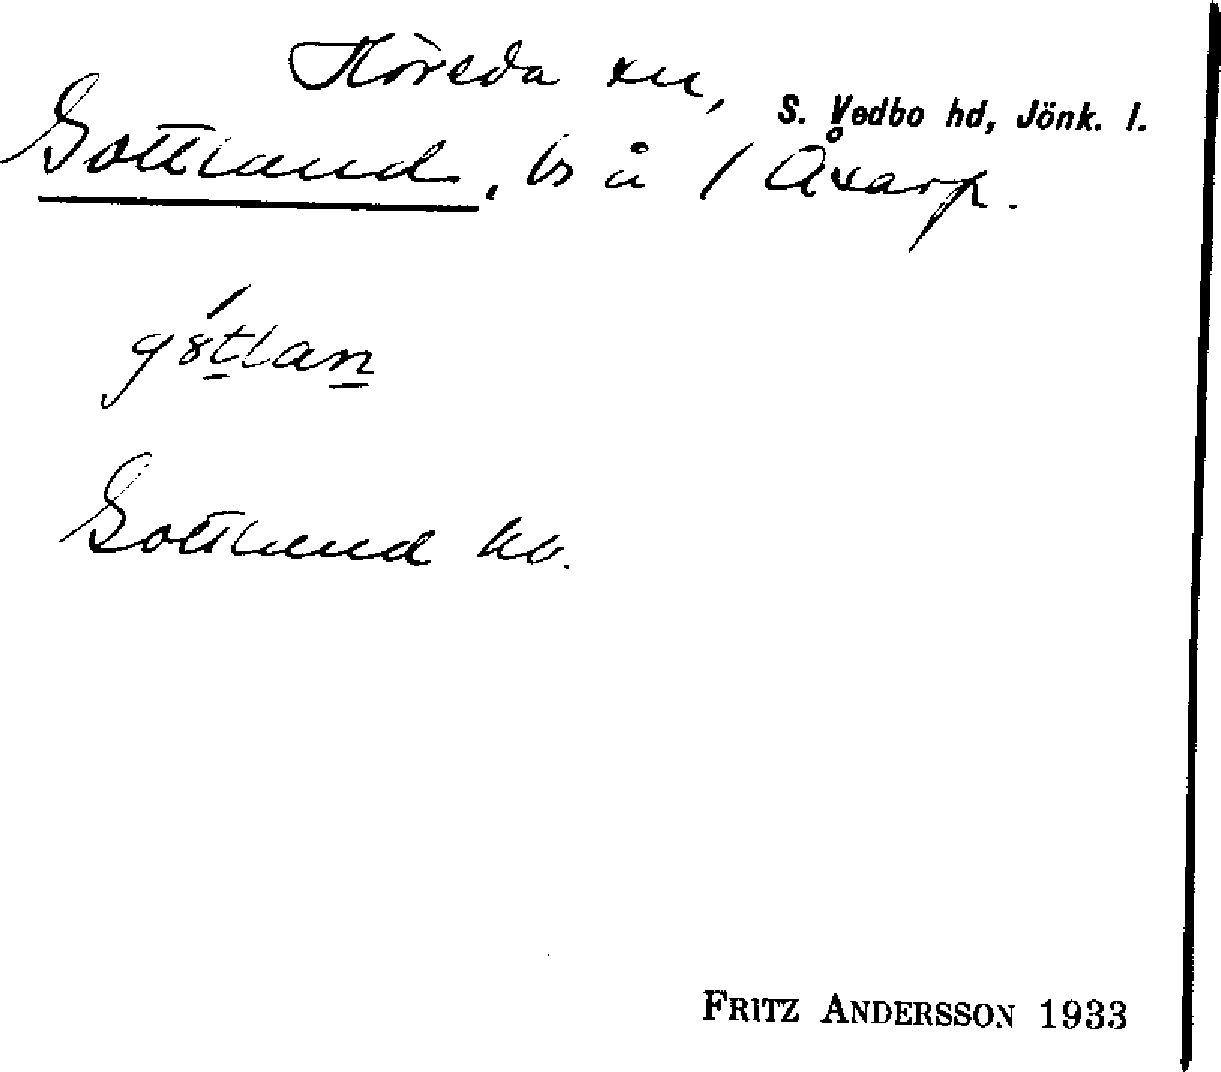 Höreda sn,
S. Vedbo hd, Jönk. l.
Gottland, bs å 1 Åkarp.
gótlan
Gottland kb.
FRITZ ANDERSSON 1933